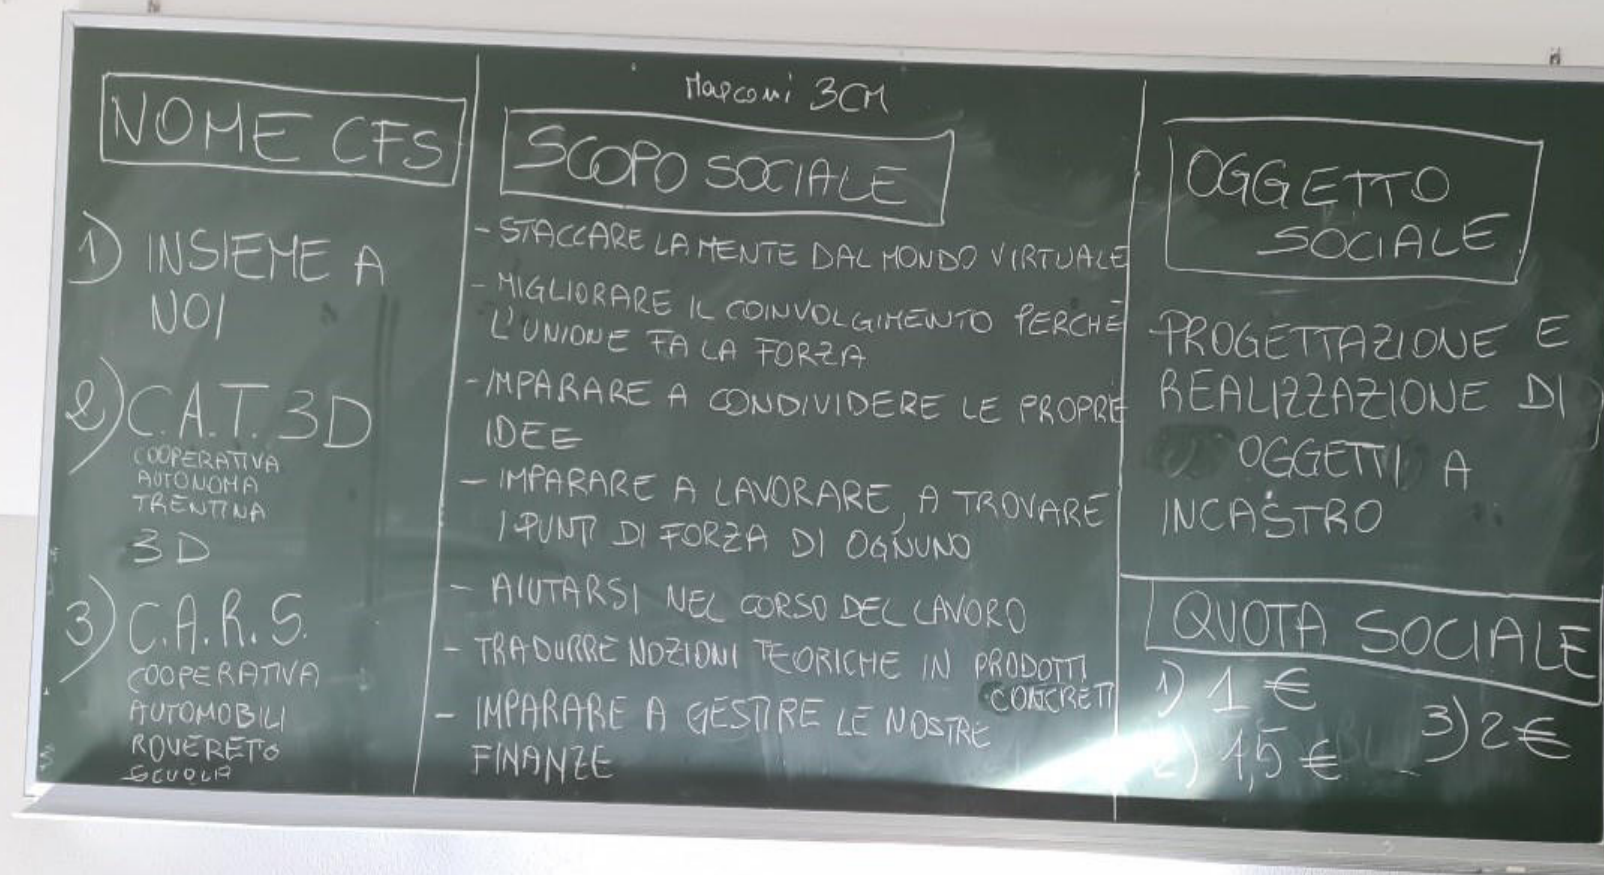 Marconi 3CM
NOME CFS
1) INSIEME A
NOI
2) C.A.T. 3D
COOPERATIVA
AUTONOMA
TRENTINA
3D
3) C.A.R.S.
COOPERATIVA
AUTOMOBILI
ROVERETO
SCUOLA
SCOPO SOCIALE
- STACCARE LA MENTE DAL MONDO VIRTUALE
- MIGLIORARE IL COINVOLGIMENTO PERCHÈ
L'UNIONE FA LA FORZA
- IMPARARE A CONDIVIDERE LE PROPRE
IDEE
- IMPARARE A LAVORARE, A TROVARE
I PUNTI DI FORZA DI OGNUNO
- AIUTARSI NEL CORSO DEL LAVORO
- TRADURRE NOZIONI TEORICHE IN PRODOTTI
CONCRETI
- IMPARARE A GESTIRE LE NOSTRE
FINANZE
OGGETTO
SOCIALE
PROGETTAZIONE E
REALIZZAZIONE DI
OGGETTI A
INCASTRO
QUOTA SOCIALE
1) 1 €
2) 1,5 €
3) 2 €